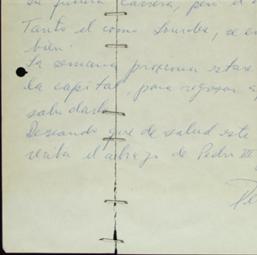 su futura carrera, pero el
Tanto el como Lourdes, se en
bien.
La semana proxima estare
la capital, para regresar a
saludarle.
Deseando que de salud este
reciba el abrazo de Pedro
Pe